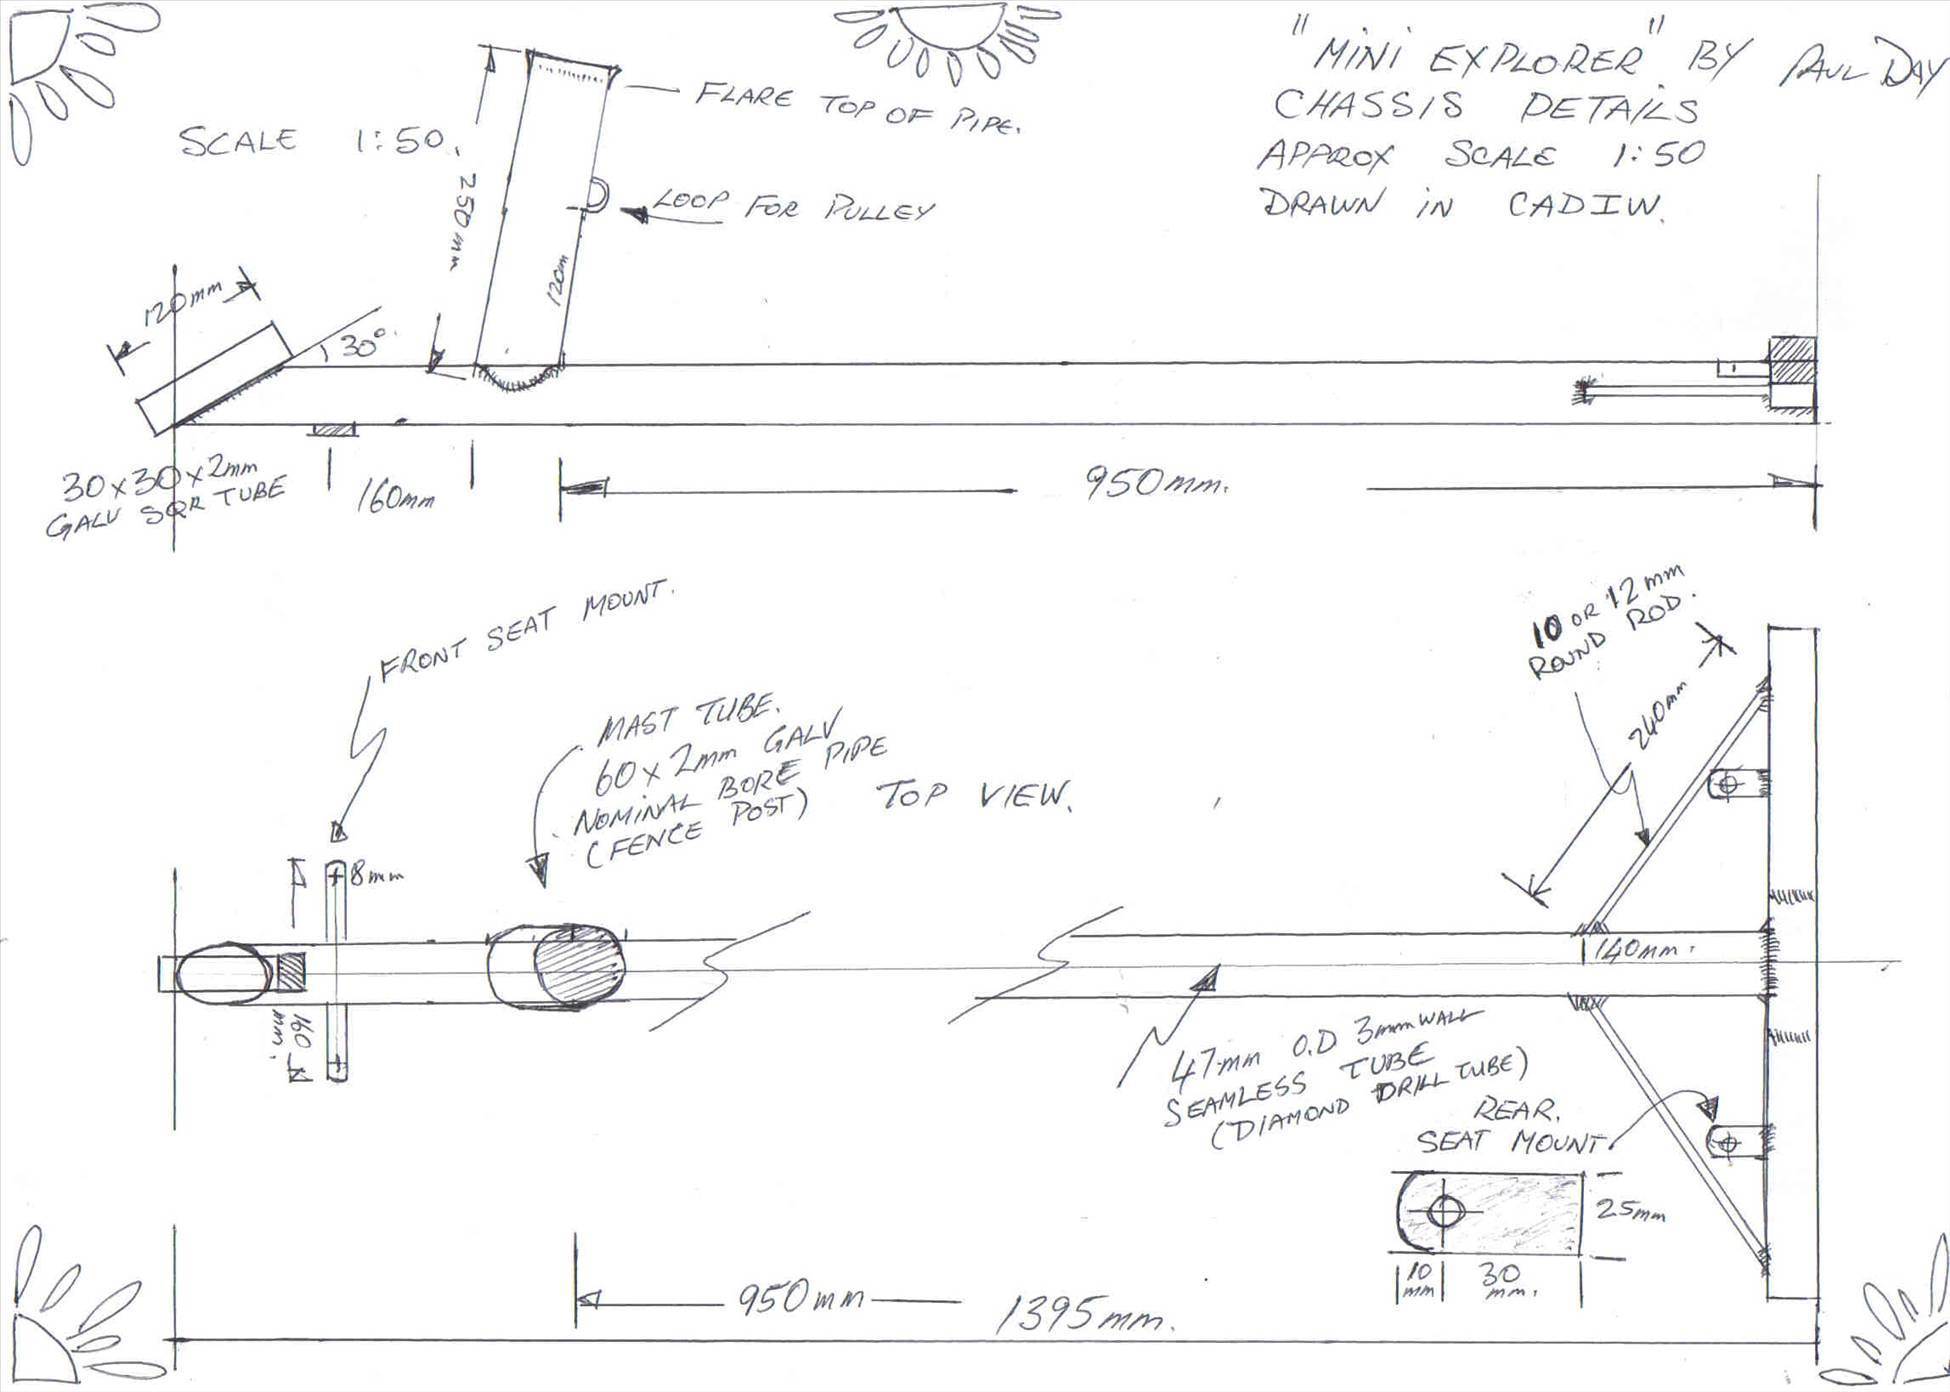 "MINI EXPLORER" BY PAUL DAY
CHASSIS DETAILS
APPROX SCALE 1:50
DRAWN IN CADIW.
SCALE 1:50.
FLARE TOP OF PIPE.
250mm
LOOP FOR PULLEY
120mm
120mm
30°.
30x30x2mm
GALV SQR TUBE
160mm
950mm.
FRONT SEAT MOUNT.
10 OR 12mm
ROUND ROD.
240mm
MAST TUBE.
60x2mm GALV
NOMINAL BORE PIPE
(FENCE POST)
TOP VIEW.
8mm
140mm.
160
mm.
47mm O.D 3mm WALL
SEAMLESS TUBE
(DIAMOND DRILL TUBE)
REAR.
SEAT MOUNT.
25mm
10
mm
30
mm.
950mm
1395mm.